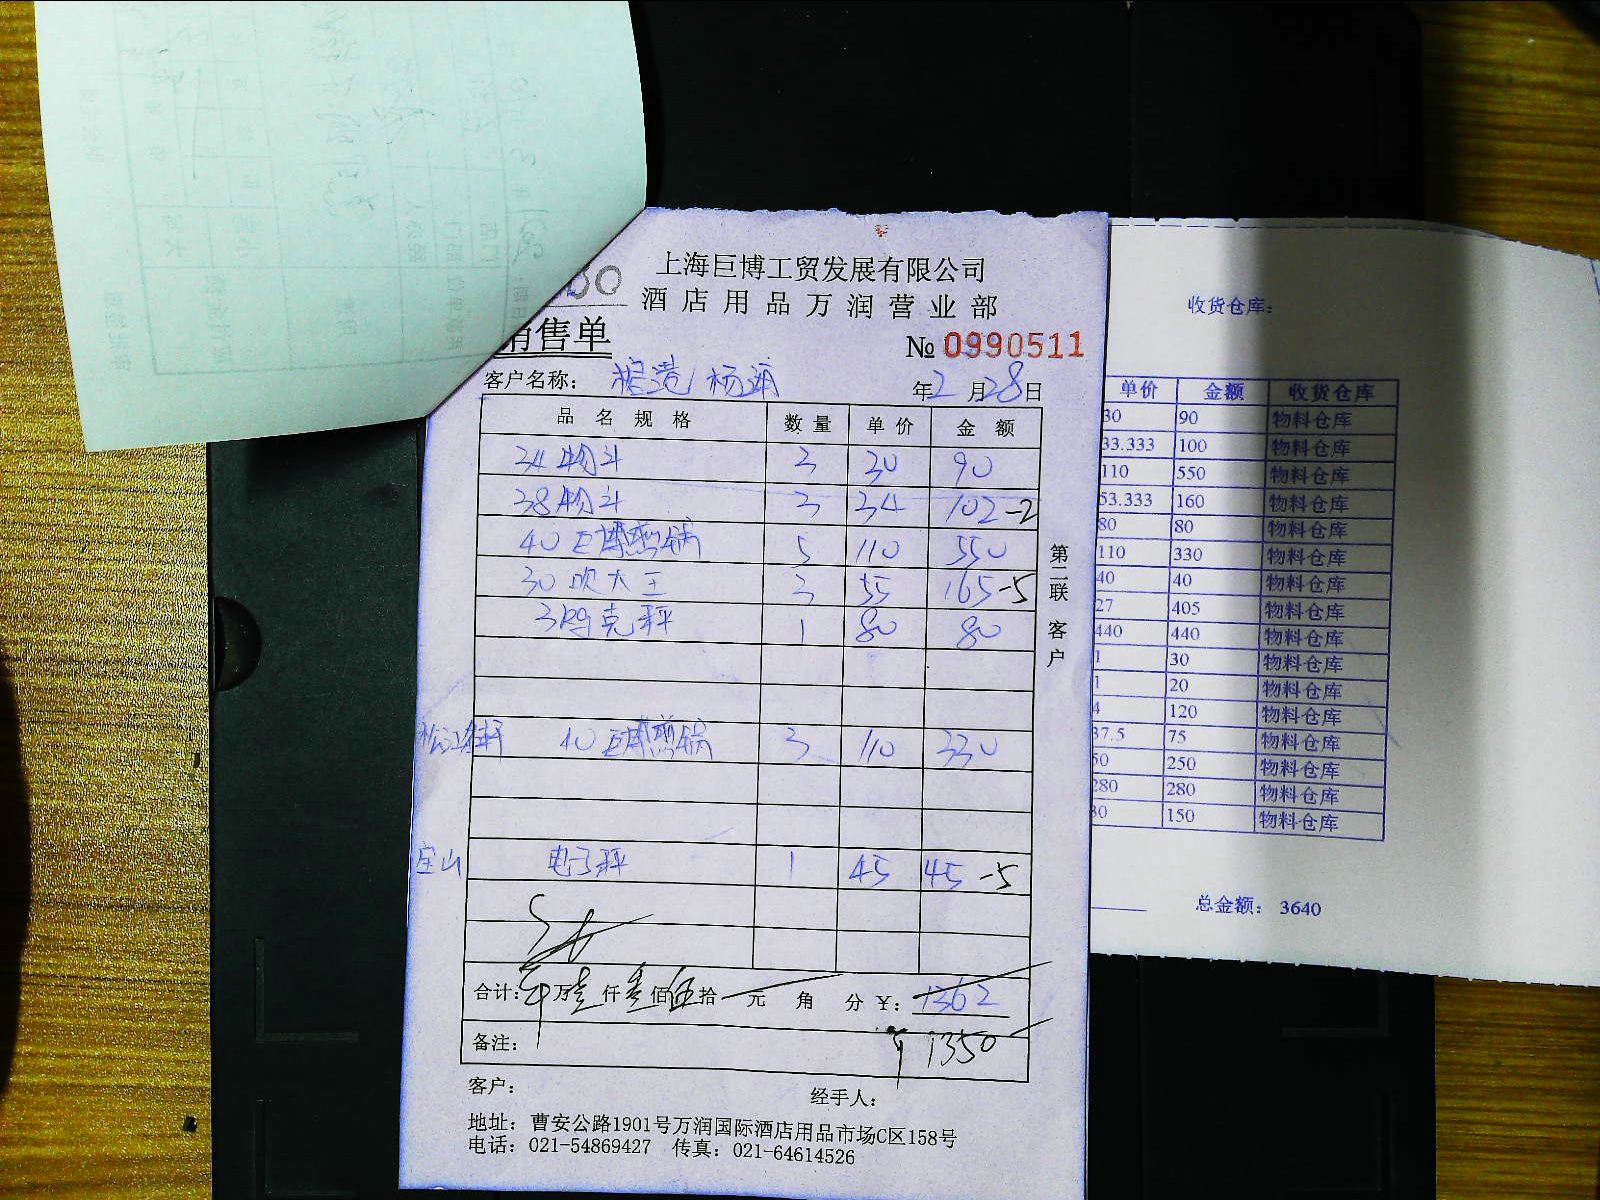 上海巨博工贸发展有限公司
酒店用品万润营业部
销售单
№ 0990511
客户名称：
年2月28日
品名规格 数量 单价 金额
34物斗 3 30 90
38物斗 3 34 102-2
40巨博煎锅 5 110 550
30吹大王 3 55 165-5
3kg克秤 1 80 80
40巨博煎锅 3 110 330
宝山 电子秤 1 45 45-5
合计： 万壹仟叁佰伍拾 元 角 分 ￥：1362
备注： ￥1350
客户： 经手人：
地址：曹安公路1901号万润国际酒店用品市场C区158号
电话：021-54869427 传真：021-64614526
第二联 客户
收货仓库：
单价 金额 收货仓库
30 90 物料仓库
33.333 100 物料仓库
110 550 物料仓库
53.333 160 物料仓库
80 80 物料仓库
110 330 物料仓库
40 40 物料仓库
27 405 物料仓库
440 440 物料仓库
1 30 物料仓库
1 20 物料仓库
4 120 物料仓库
37.5 75 物料仓库
50 250 物料仓库
280 280 物料仓库
30 150 物料仓库
总金额： 3640